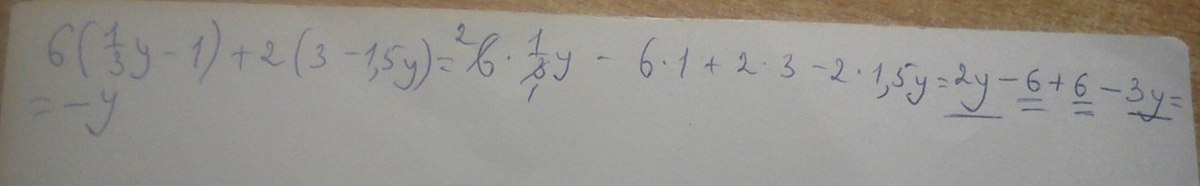 6(1/3y - 1) + 2(3 - 1,5y) = 6 · 1/3y - 6·1 + 2·3 - 2·1,5y = 2y - 6 + 6 - 3y =
= -y